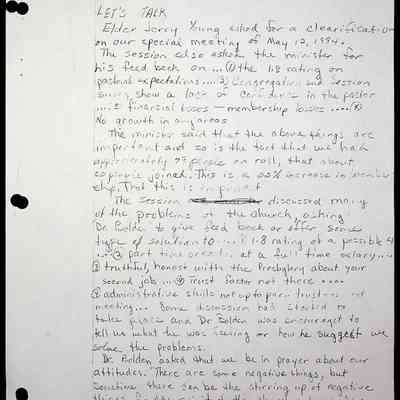 LET'S TALK
Elder Jerry Young asked for a clearification
on our special meeting of May 12, 1994.
The session also asked the minister for
his feed back on ... (1) the 1.8 rating on
pastoral expectations .... 2) Congregation and session
survey show a lack of confidence in the pastor
.... financial losses — membership losses .... (4)
No growth in any areas
The minister said that the above things are
important and so is the fact that we had
approximately people on roll, that about
people joined. This is a increase in member-
ship. That this is
The Session discussed many
of the problems of the church, asking
Dr. Bolden to give feed back or offer some
type of solution to .... 1.8 rating of a possible 4
.... part time at a full time salary ....
③ truthful, honest with the Presbytery about your
second job ... ④ Trust factor not there ....
administrative skills not up to par
meeting ... Some discussion had started to
take place and Dr. Bolden was encouraged to
tell us what he was feeling or how he suggest we
solve the problems.
Dr. Bolden asked that we be in prayer about our
attitudes. There are some negative things, but
sometime there can be the stirring up of negative
things